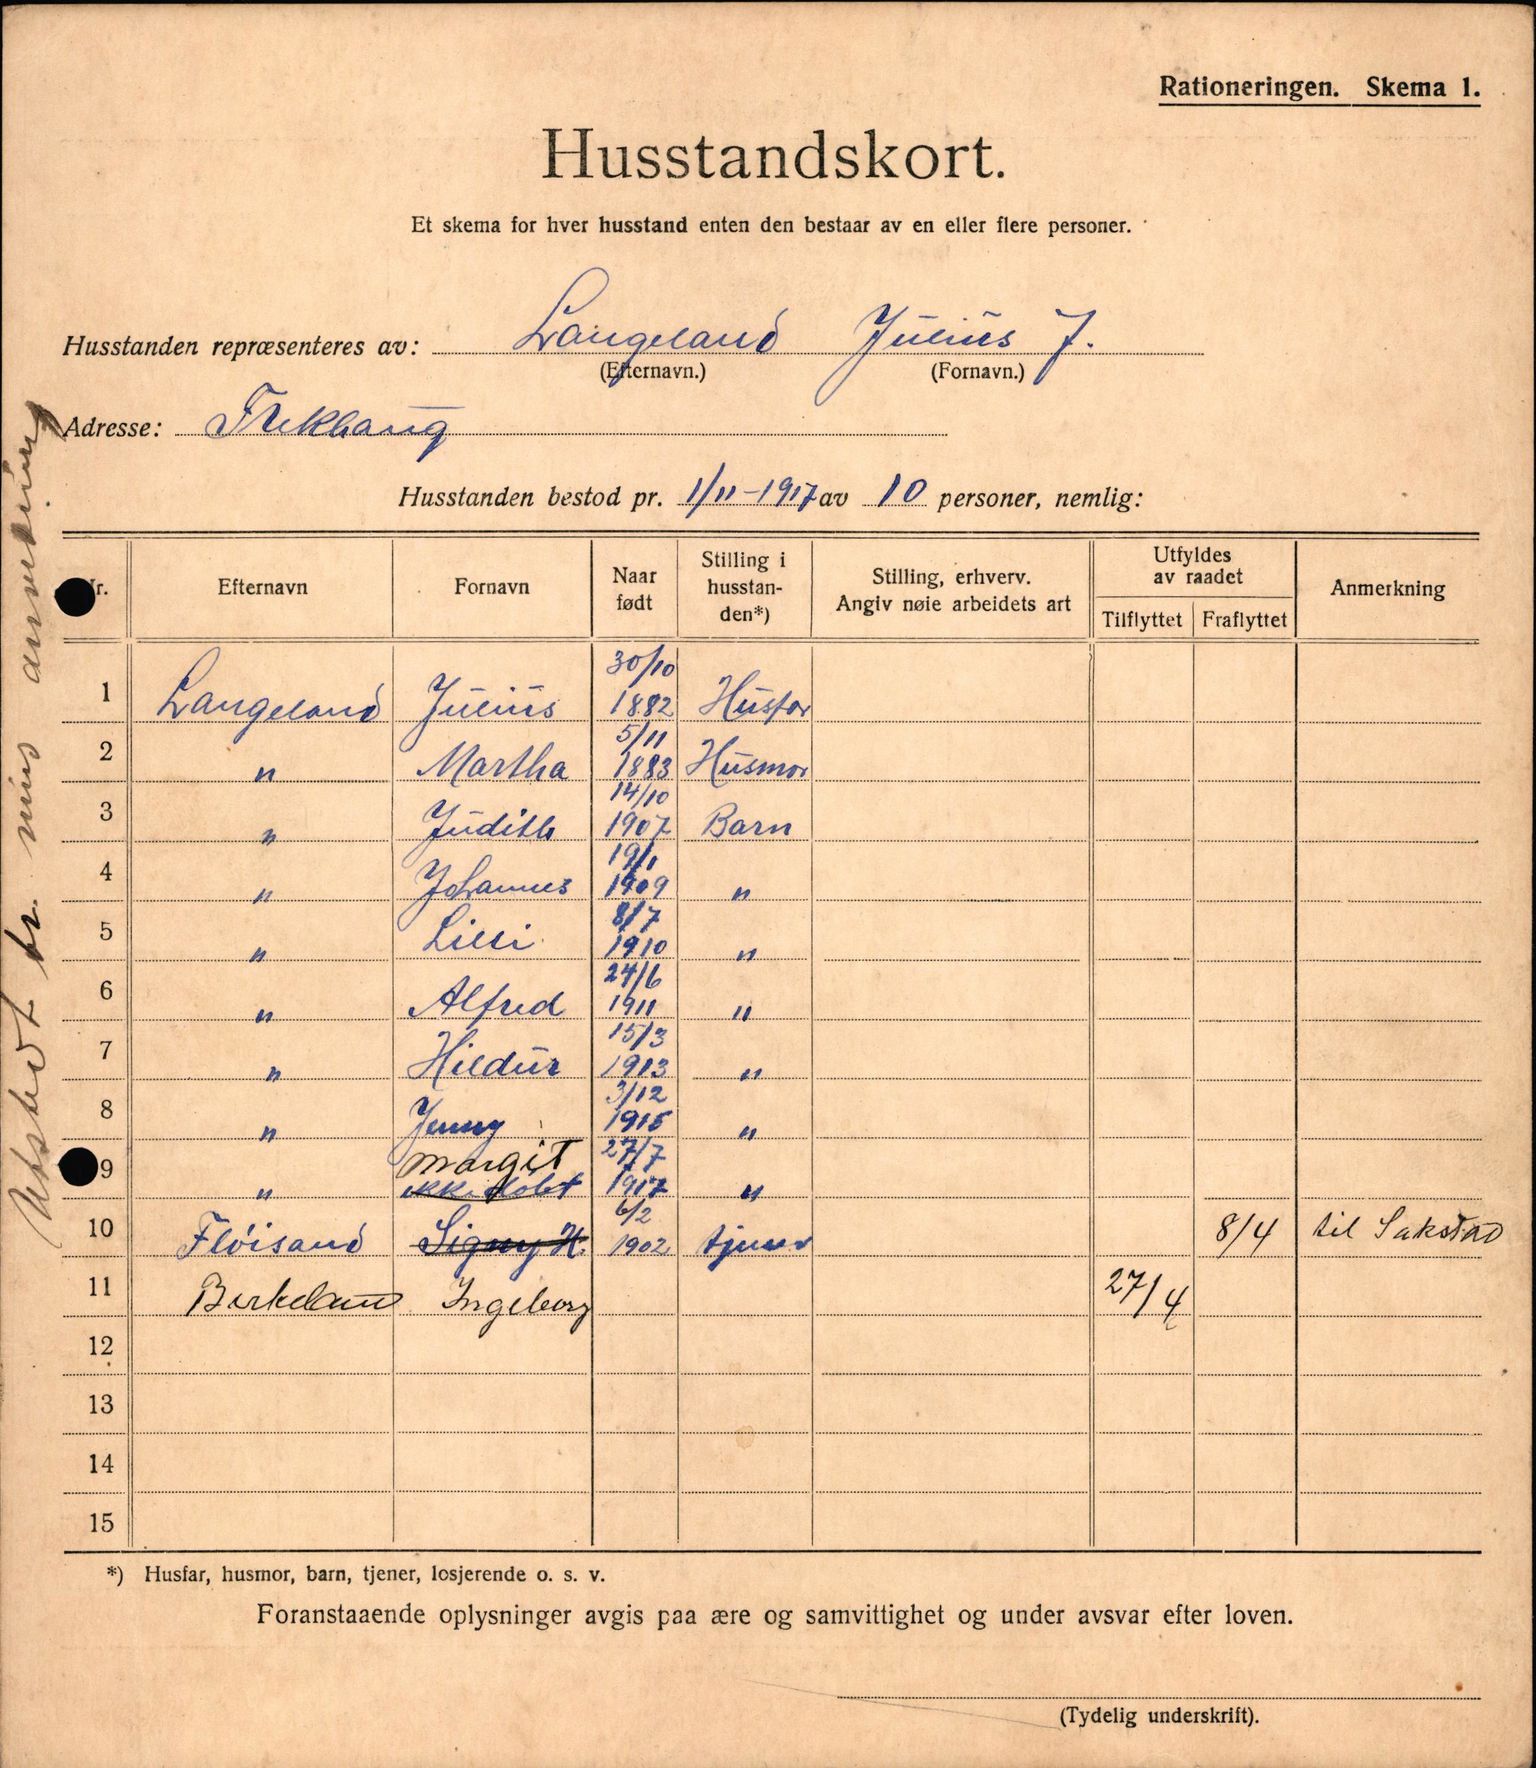 Rationeringen. Skema 1.
Husstandskort.
Et skema for hver husstand enten den bestaar av en eller flere personer.
Husstanden repræsenteres av: Langeland Julius J.
(Efternavn.) (Fornavn.)
Adresse: Frekhaug
Husstanden bestod pr. 1/11-1917 av 10 personer, nemlig:
Nr. Efternavn Fornavn Naar født Stilling i husstanden*) Stilling, erhverv. Angiv nøie arbeidets art Utfyldes av raadet Tilflyttet Fraflyttet Anmerkning
1 Langeland Julius 30/10 1882 Husfar
2 " Martha 5/11 1883 Husmor
3 " Judith 14/10 1907 Barn
4 " Johannes 19/1 1909 "
5 " Lilli 8/7 1910 "
6 " Alfred 24/6 1911 "
7 " Hildur 15/3 1913 "
8 " Jenny 3/12 1915 "
9 " Margit ikke døbt 27/7 1917 "
10 Fløisand Signy H. 6/2 1902 tjener 8/4 til Sakstad
11 Birkeland Ingeborg 27/4
12
13
14
15
*) Husfar, husmor, barn, tjener, losjerende o. s. v.
Foranstaaende oplysninger avgis paa ære og samvittighet og under avsvar efter loven.
(Tydelig underskrift).
Utstedt br. mins anvekning